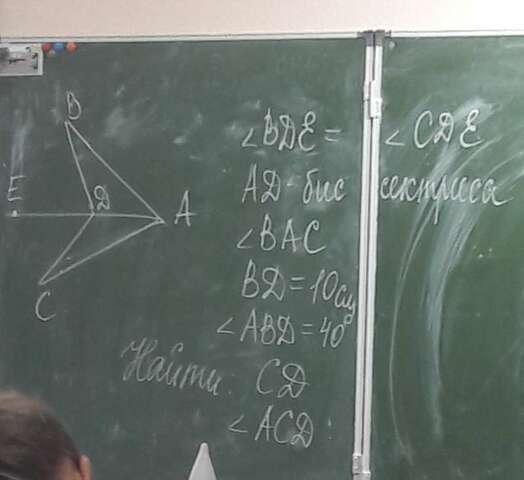 B
E
D
A
C
∠BDE = ∠CDE
AD - биссектриса
∠BAC
BD = 10см
∠ABD = 40°
Найти: CD
∠ACD